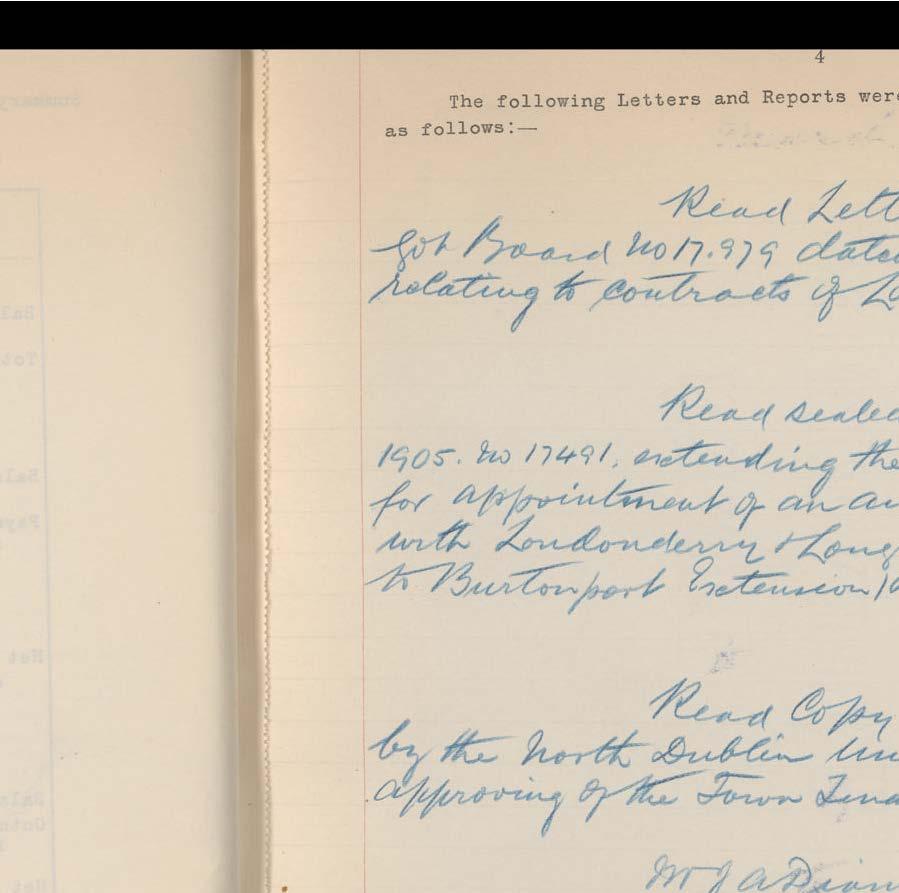 4
The following Letters and Reports were
as follows:—
Read Lett
Govt Board No 17.979 dated
relating to contracts of Lo
Read sealed
1905. No 17491. extending the
for appointment of an au
with Londonderry & Loug
to Burtonport Extension
Read Copy
by the North Dublin Un
approving of the Town Tena
Mr J A